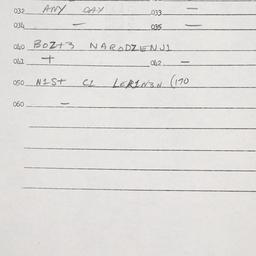 032 ANY DAY 033 —
034 — 035 —
040 BOZ+3 NARODZENJ1
041 + 042 —
050 N1S+ C1 LER1N3N (170
060 —